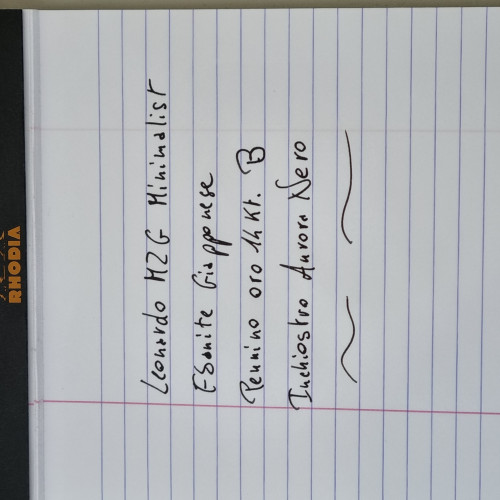 Leonardo MZG Minimalist
Ebanite Giapponese
Pennino oro 14Kt. B
Inchiostro Aurora Nero
RHODIA